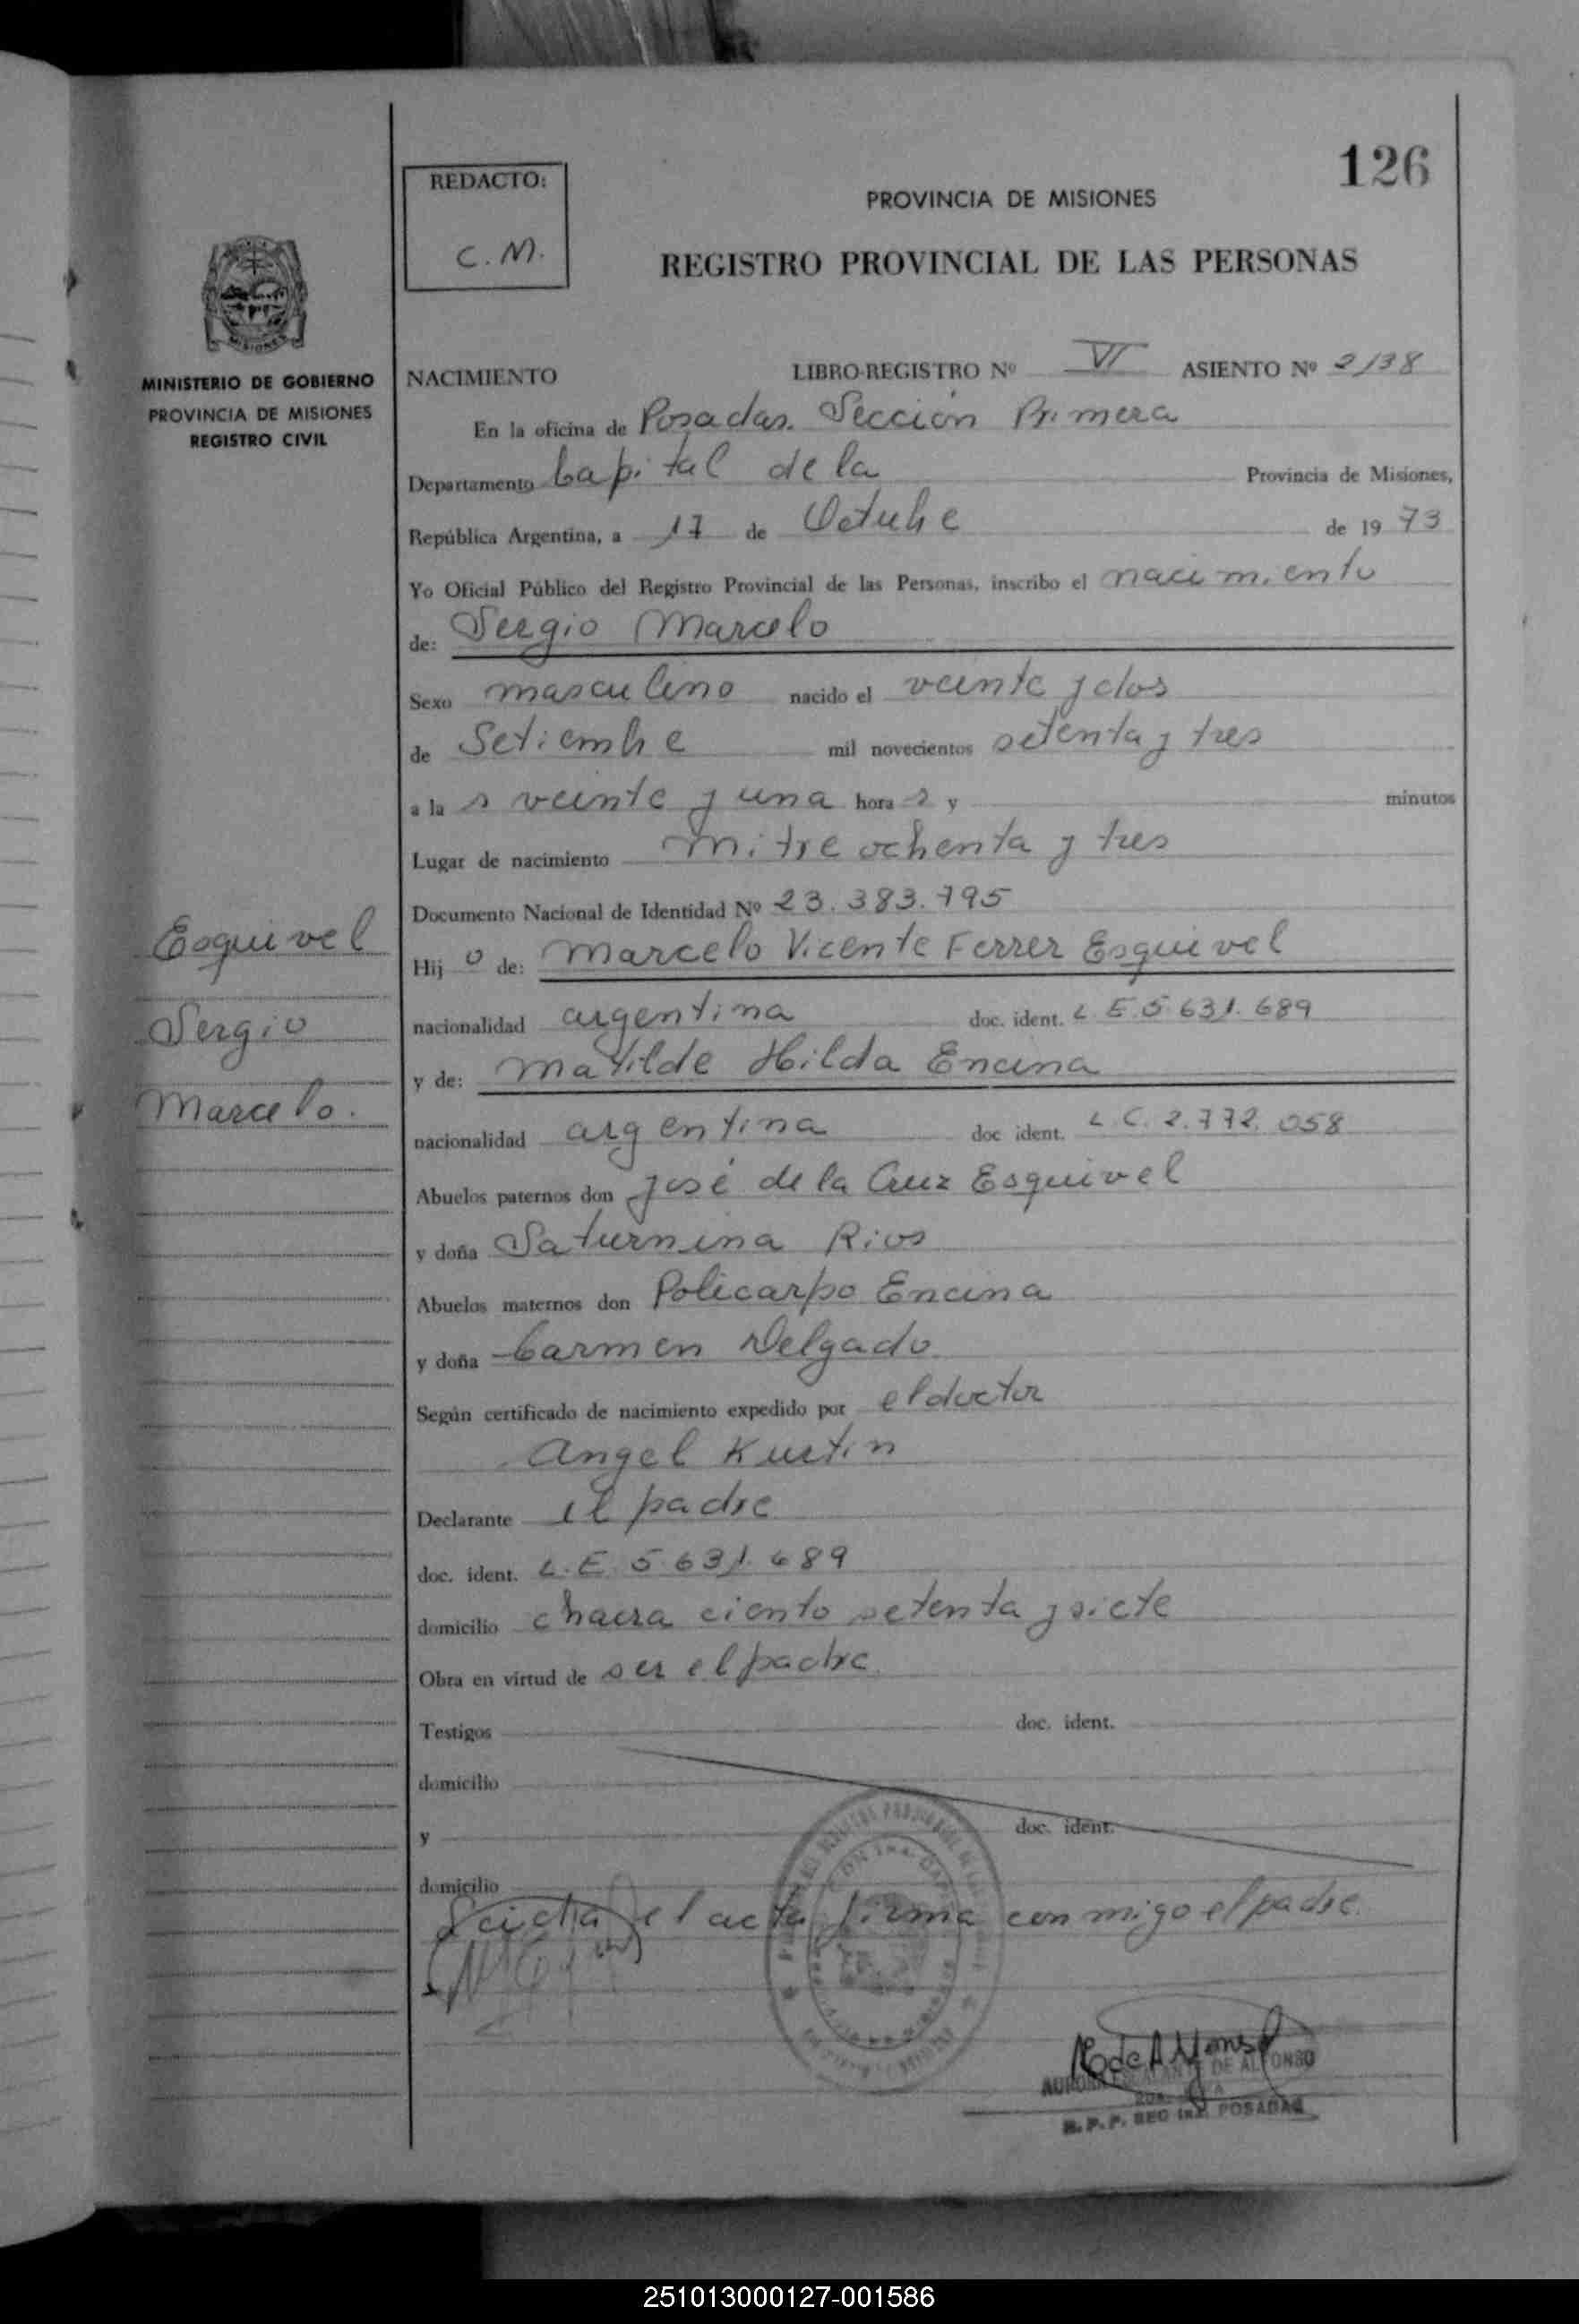 126
REDACTO:
C. M.
PROVINCIA DE MISIONES
REGISTRO PROVINCIAL DE LAS PERSONAS
MISIONES
MINISTERIO DE GOBIERNO
PROVINCIA DE MISIONES
REGISTRO CIVIL
NACIMIENTO LIBRO-REGISTRO Nº VI ASIENTO Nº 2138
En la oficina de Posadas. Sección Primera
Departamento Capital de la Provincia de Misiones,
República Argentina, a 17 de Octubre de 19 73
Yo Oficial Público del Registro Provincial de las Personas, inscribo el nacimiento
de: Sergio Marcelo
Sexo masculino nacido el veinte y dos
de Setiembre mil novecientos setenta y tres
a la s veinte y una hora s y minutos
Lugar de nacimiento mitre ochenta y tres
Documento Nacional de Identidad Nº 23.383.795
Hij o de: Marcelo Vicente Ferrer Esquivel
nacionalidad argentina doc. ident. L.E.5.631.689
y de: Matilde Hilda Encina
nacionalidad argentina doc ident. L.C.2.772.058
Abuelos paternos don José de la Cruz Esquivel
y doña Saturnina Rios
Abuelos maternos don Policarpo Encina
y doña Carmen Delgado
Según certificado de nacimiento expedido por el doctor
Angel Kustin
Declarante el padre
doc. ident. L.E. 5.631.689
domicilio chacra ciento setenta y siete
Obra en virtud de ser el padre.
Testigos doc. ident.
domicilio
y doc. ident.
domicilio
Leida el acta firma conmigo el padre.
Esquivel
Sergio
Marcelo.
AURORA ESCALANTE DE ALFONSO
R.P.P. SEC 1ra. POSADAS
251013000127-001586